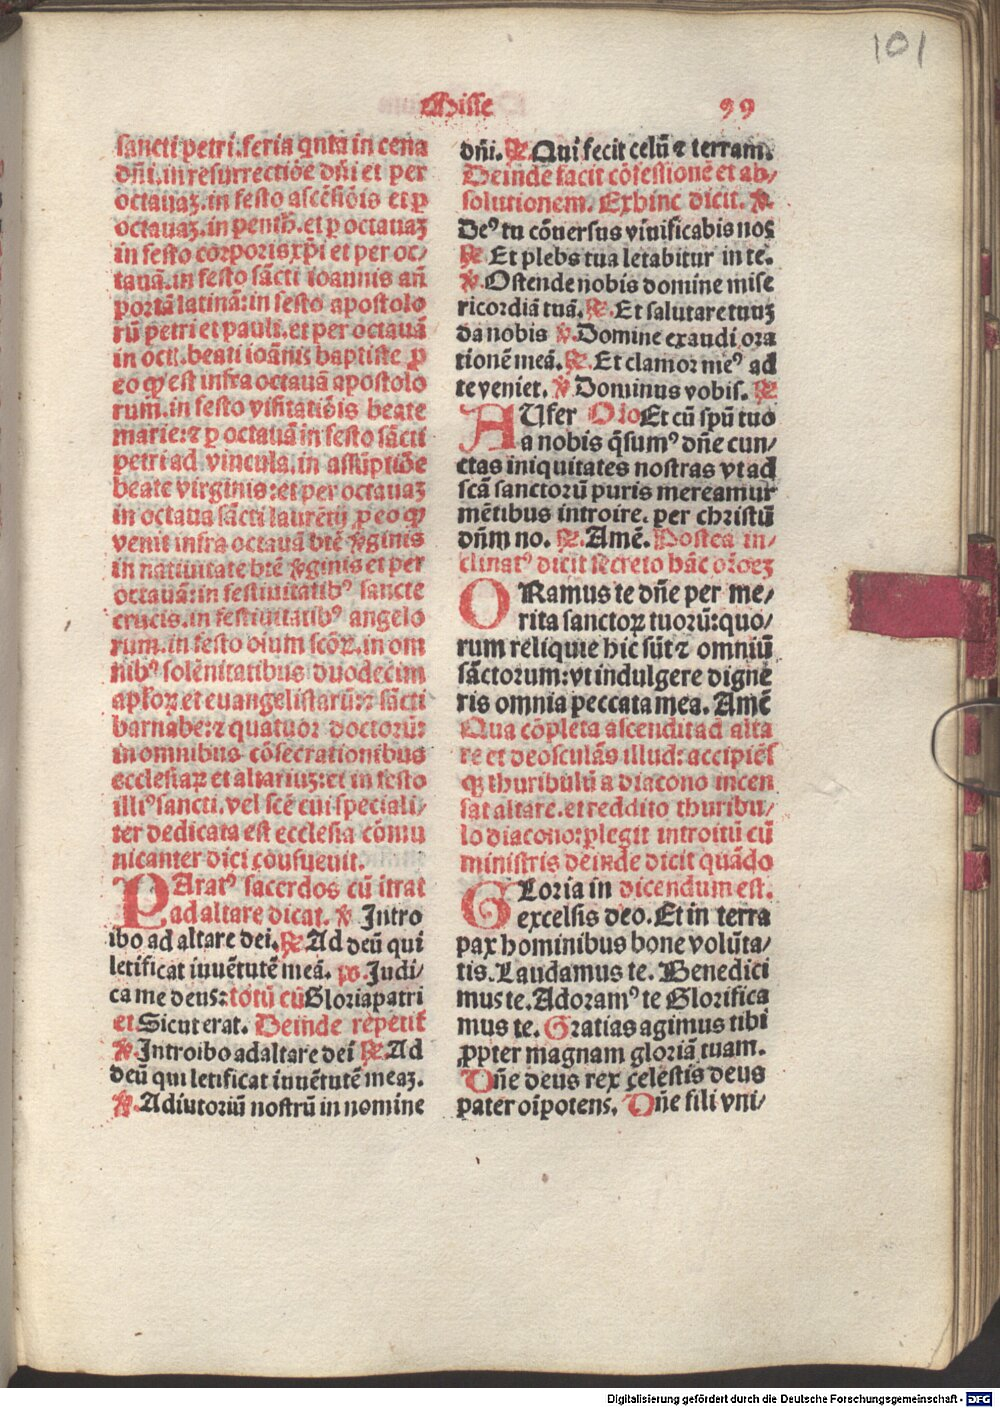 101
Misse 99
sancti petri.feria qnta in cena
dñi.in resurrectiõe dñi et per
octauaȝ.in festo ascẽsiõis et ꝑ
octauaȝ.in penth̃.et ꝑ octauaȝ
in festo corporis xp̃i et per oc/
tauã.in festo sãcti ioannis añ
portã latinã:in festo apostolo
rũ petri et pauli.et per octauã
in octĩ.beati ioãnis baptiste ꝑ
eo ꝙ est infra octauã apostolo
rum.in festo visitatiõis beate
marie:⁊ ꝑ octauã in festo sãcti
petri ad vincula.in assũptiõe
beate virginis:et per octauaȝ
in octaua sãcti laurẽtij ꝑ eo ꝙ
venit infra octauã btẽ v̾ginis
in natiuitate btẽ v̾ginis et per
octauã:in festiuitatibꝰ sancte
crucis.in festiuitatibꝰ angelo
rum.in festo oium scõꝝ.in om
nibꝰ solẽnitatibus duodecim
apl'oꝝ et euangelistarũ:⁊ sãcti
barnabe:⁊ quatuor doctorũ:
in omnibus cõsecrationibus
ecclesiaꝝ et altariuȝ:et in festo
illiꝰ sancti.vel scẽ cui speciali/
ter dedicata est ecclesia cõmu
nicanter dici consueuit.
PAratꝰ sacerdos cũ itrat
ad altare dicat. ℣ Intro
ibo ad altare dei.℟ Ad deũ qui
letificat iuuẽtutẽ meã. ps.Judi/
ca me deus:totũ cũ Gloria patri
et Sicut erat. Deinde repetit̃
℣.Introibo ad altare dei ℟ Ad
deũ qui letificat iuuẽtutẽ meaȝ.
℣.Adiutoriũ nostrũ in nomine
dñi.℟ Qui fecit celũ ⁊ terram.
Deinde facit cõfessionẽ et ab/
solutionem. Exhinc dicit. ℣.
Deꝰ tu cõuersus viuificabis nos
℟ Et plebs tua letabitur in te.
℣.Ostende nobis domine mise
ricordiã tuã.℟.Et salutare tuuȝ
da nobis ℣.Domine exaudi ora
tionẽ meã.℟.Et clamor meꝰ ad
te veniet. ℣ Dominus vobis. ℟
AUfer Oro Et cũ spũ tuo
a nobis q̃sumꝰ dñe cun/
ctas iniquitates nostras vt ad
scã sanctorũ puris mereamur
mẽtibus introire. per christũ
dñm no. ℟.Amẽ. Postea in/
clinatꝰ dicit secreto hãc orõeȝ
ORamus te dñe per me/
rita sanctoꝝ tuorũ:quo/
rum reliquie hic sũt ⁊ omniũ
sãctorum:vt indulgere digne
ris omnia peccata mea. Amẽ
Qua cõpleta ascendit ad alta
re et deosculãs illud: accipiẽs
qꝫ thuribulũ a diacono incen
sat altare.et reddito thuribu/
lo diacono:plegit introitũ cũ
ministris deinde dicit quãdo
GLoria in dicendum est.
excelsis deo.Et in terra
pax hominibus bone volũta/
tis.Laudamus te. Benedici
mus te.Adoramꝰ te Glorifica
mus te. Gratias agimus tibi
ꝓpter magnam gloriã tuam.
Dñe deus rex celestis deus
pater oĩpotens. Dñe fili vni/
Digitalisierung gefördert durch die Deutsche Forschungsgemeinschaft - DFG